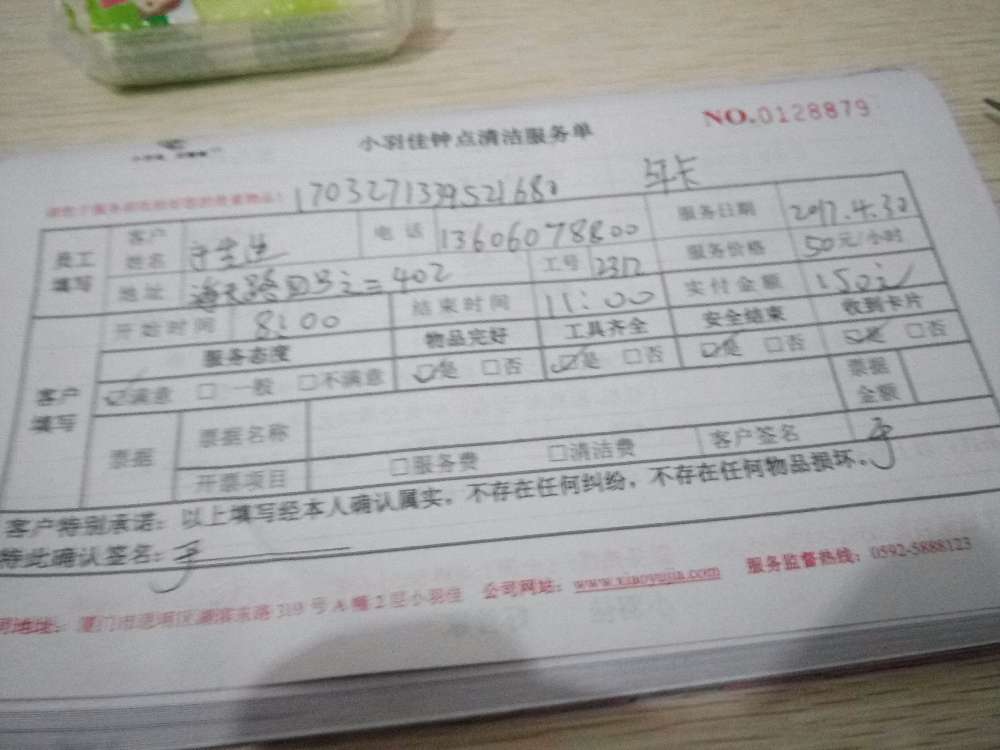 小羽佳钟点清洁服务单
NO.0128879
1703271339521680 年卡
员工填写 客户姓名 电话 13606078800 服务日期 2017.4.30
地址 海天路四号之二402 工号 2312 服务价格 50元/小时
客户填写 开始时间 8:00 结束时间 11:00 实付金额 150元
服务态度 物品完好 工具齐全 安全结束 收到卡片
☑满意 □一般 □不满意 ☑是 □否 ☑是 □否 ☑是 □否 ☑是 □否
票据 票据名称 票据金额
开票项目 □服务费 □清洁费 客户签名
客户特别承诺：以上填写经本人确认属实，不存在任何纠纷，不存在任何物品损坏。
特此确认签名：
地址：厦门市思明区湖滨东路319号A幢2层小羽佳 公司网站：www.xiaoyujia.com 服务监督热线：0592-5888123